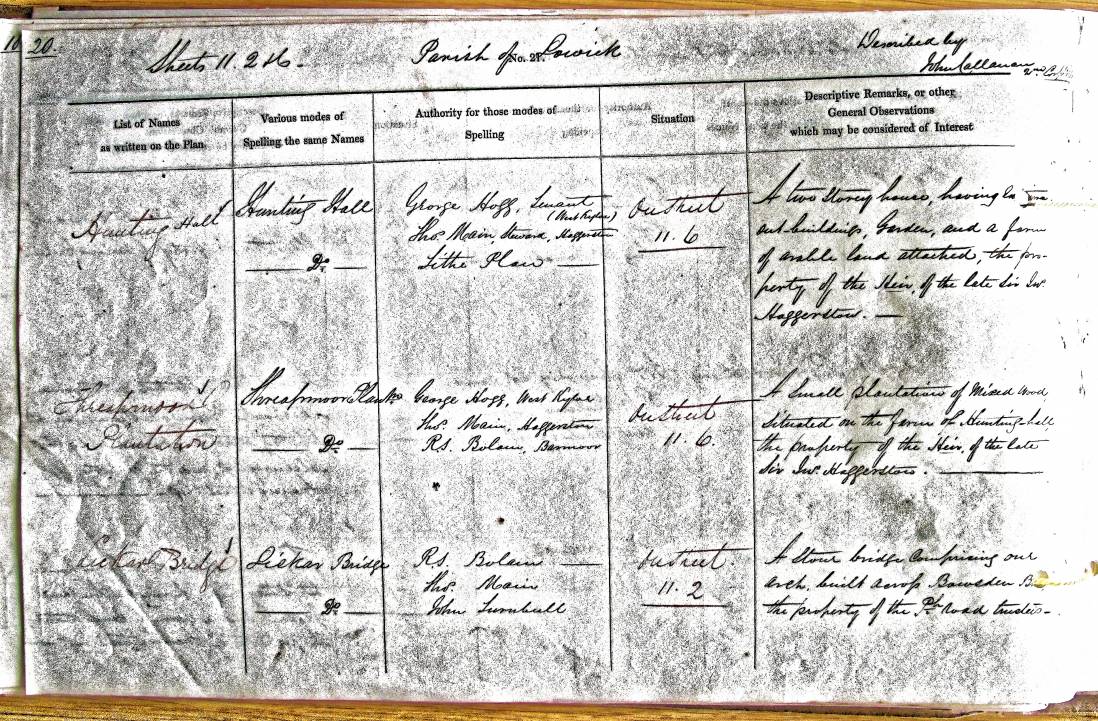 20.
Sheets 11. 2 & 6 -
Parish of Lowick
No. 27.
Described by
John Callanan
2nd Corpl
List of Names
as written on the Plan
Various modes of
Spelling the same Names
Authority for those modes of
Spelling
Situation
Descriptive Remarks, or other
General Observations
which may be considered of Interest
Hunting Hall
Hunting Hall
Do.
George Hogg, Tenant
(West Kyloe)
Thos. Main, Steward, Haggerston
Tithe Plan
On Sheet
11. 6
A two Storey house, having
out-buildings, Garden, and a farm
of arable land attached, the pro-
perty of the Heir, of the late Sir Jno.
Haggerston. —
Threapmoor
Plantation
Threapmoor Plantn.
Do.
George Hogg, West Kyloe
Thos. Main, Haggerston
Rt. Bolam, Barmoor
On Sheet
11. 6.
A Small plantation of Mixed Wood
Situated on the farm of Hunting-hall
the property of the Heir, of the late
Sir Jno. Haggerston. —
Lickar Bridge
Lickar Bridge
Do.
Rt. Bolam
Thos. Main
John Turnbull
On Sheet
11. 2
A Stone bridge Comprising one
arch, built across Bowsden
the property of the Road trustees -